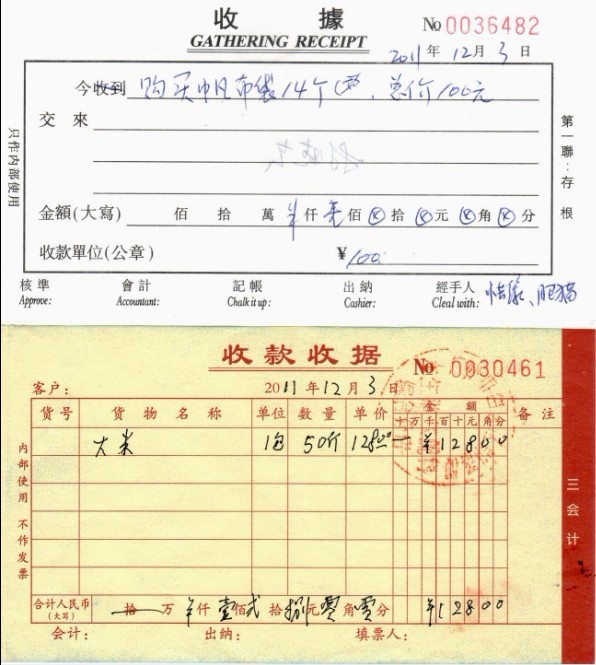 收 據
GATHERING RECEIPT
No 0036482
2011 年 12 月 3 日
今收到 购买帆布袋14个, 总价100元
交 來
只作内部使用
第一聯:存根
金額(大寫) 佰 拾 萬 ¥ 仟 壹 佰 ⊗ 拾 ⊗ 元 ⊗ 角 ⊗ 分
收款單位(公章) ¥ 100.
核 準 會 計 記 帳 出 納 經手人
Approve: Accountant: Chalk it up: Cashier: Cleal with:
收款收据
No 0030461
客户: 2011 年 12 月 3 日
货号 货 物 名 称 单位 数 量 单 价 金 额 备 注
十 万 千 百 十 元 角 分
大米 1包 50斤 128.00 ¥ 1 2 8 0 0
内部使用 不作发票
三 会 计
合计人民币 (大写) 拾 万 ¥ 仟 壹 佰 贰 拾 捌 元 零 角 零 分 ¥ 1 2 8 0 0
会计: 出纳: 填票人: